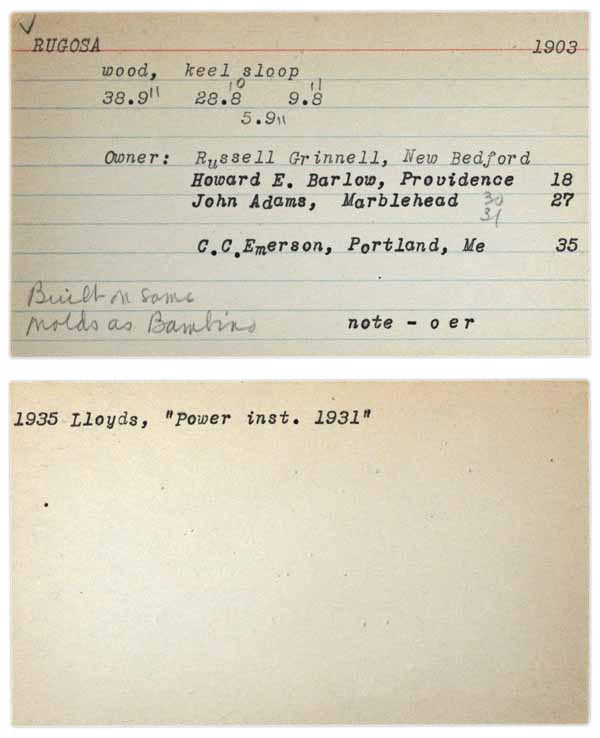 ✓
RUGOSA 1903
wood, keel sloop
38.9" 28.8 10 9.8 11
5.9"
Owner: Russell Grinnell, New Bedford
Howard E. Barlow, Providence 18
John Adams, Marblehead 30 27
31
C.C.Emerson, Portland, Me 35
Built on same
molds as Bambino note - o er
1935 Lloyds, "Power inst. 1931"